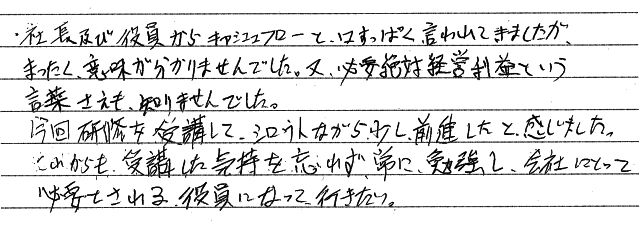 ・社長及び役員からキャッシュフローと、口すっぱく言われてきましたが、
まったく、意味が分かりませんでした。又、必要絶対経営利益という
言葉さえも、知りませんでした。
今回研修を受講して、シロウトながら少し、前進したと、感じました。
これからも、受講した気持を忘れず、常に、勉強し、会社にとって
必要とされる役員になって行きたい。